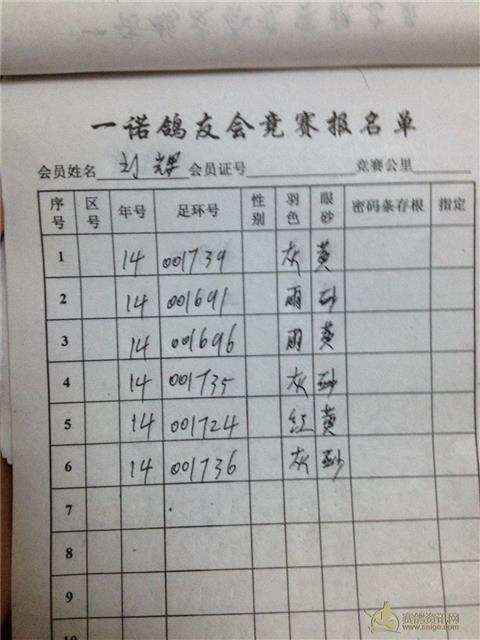 一诺鸽友会竞赛报名单
会员姓名 刘辉 会员证号 竞赛公里
序号 区号 年号 足环号 性别 羽色 眼砂 密码条存根 指定
1 14 001739 灰 黄
2 14 001691 雨 砂
3 14 001696 雨 黄
4 14 001735 灰 砂
5 14 001724 红 黄
6 14 001736 灰 砂
7
8
9
10
赛鸽资讯网
www.saige.com